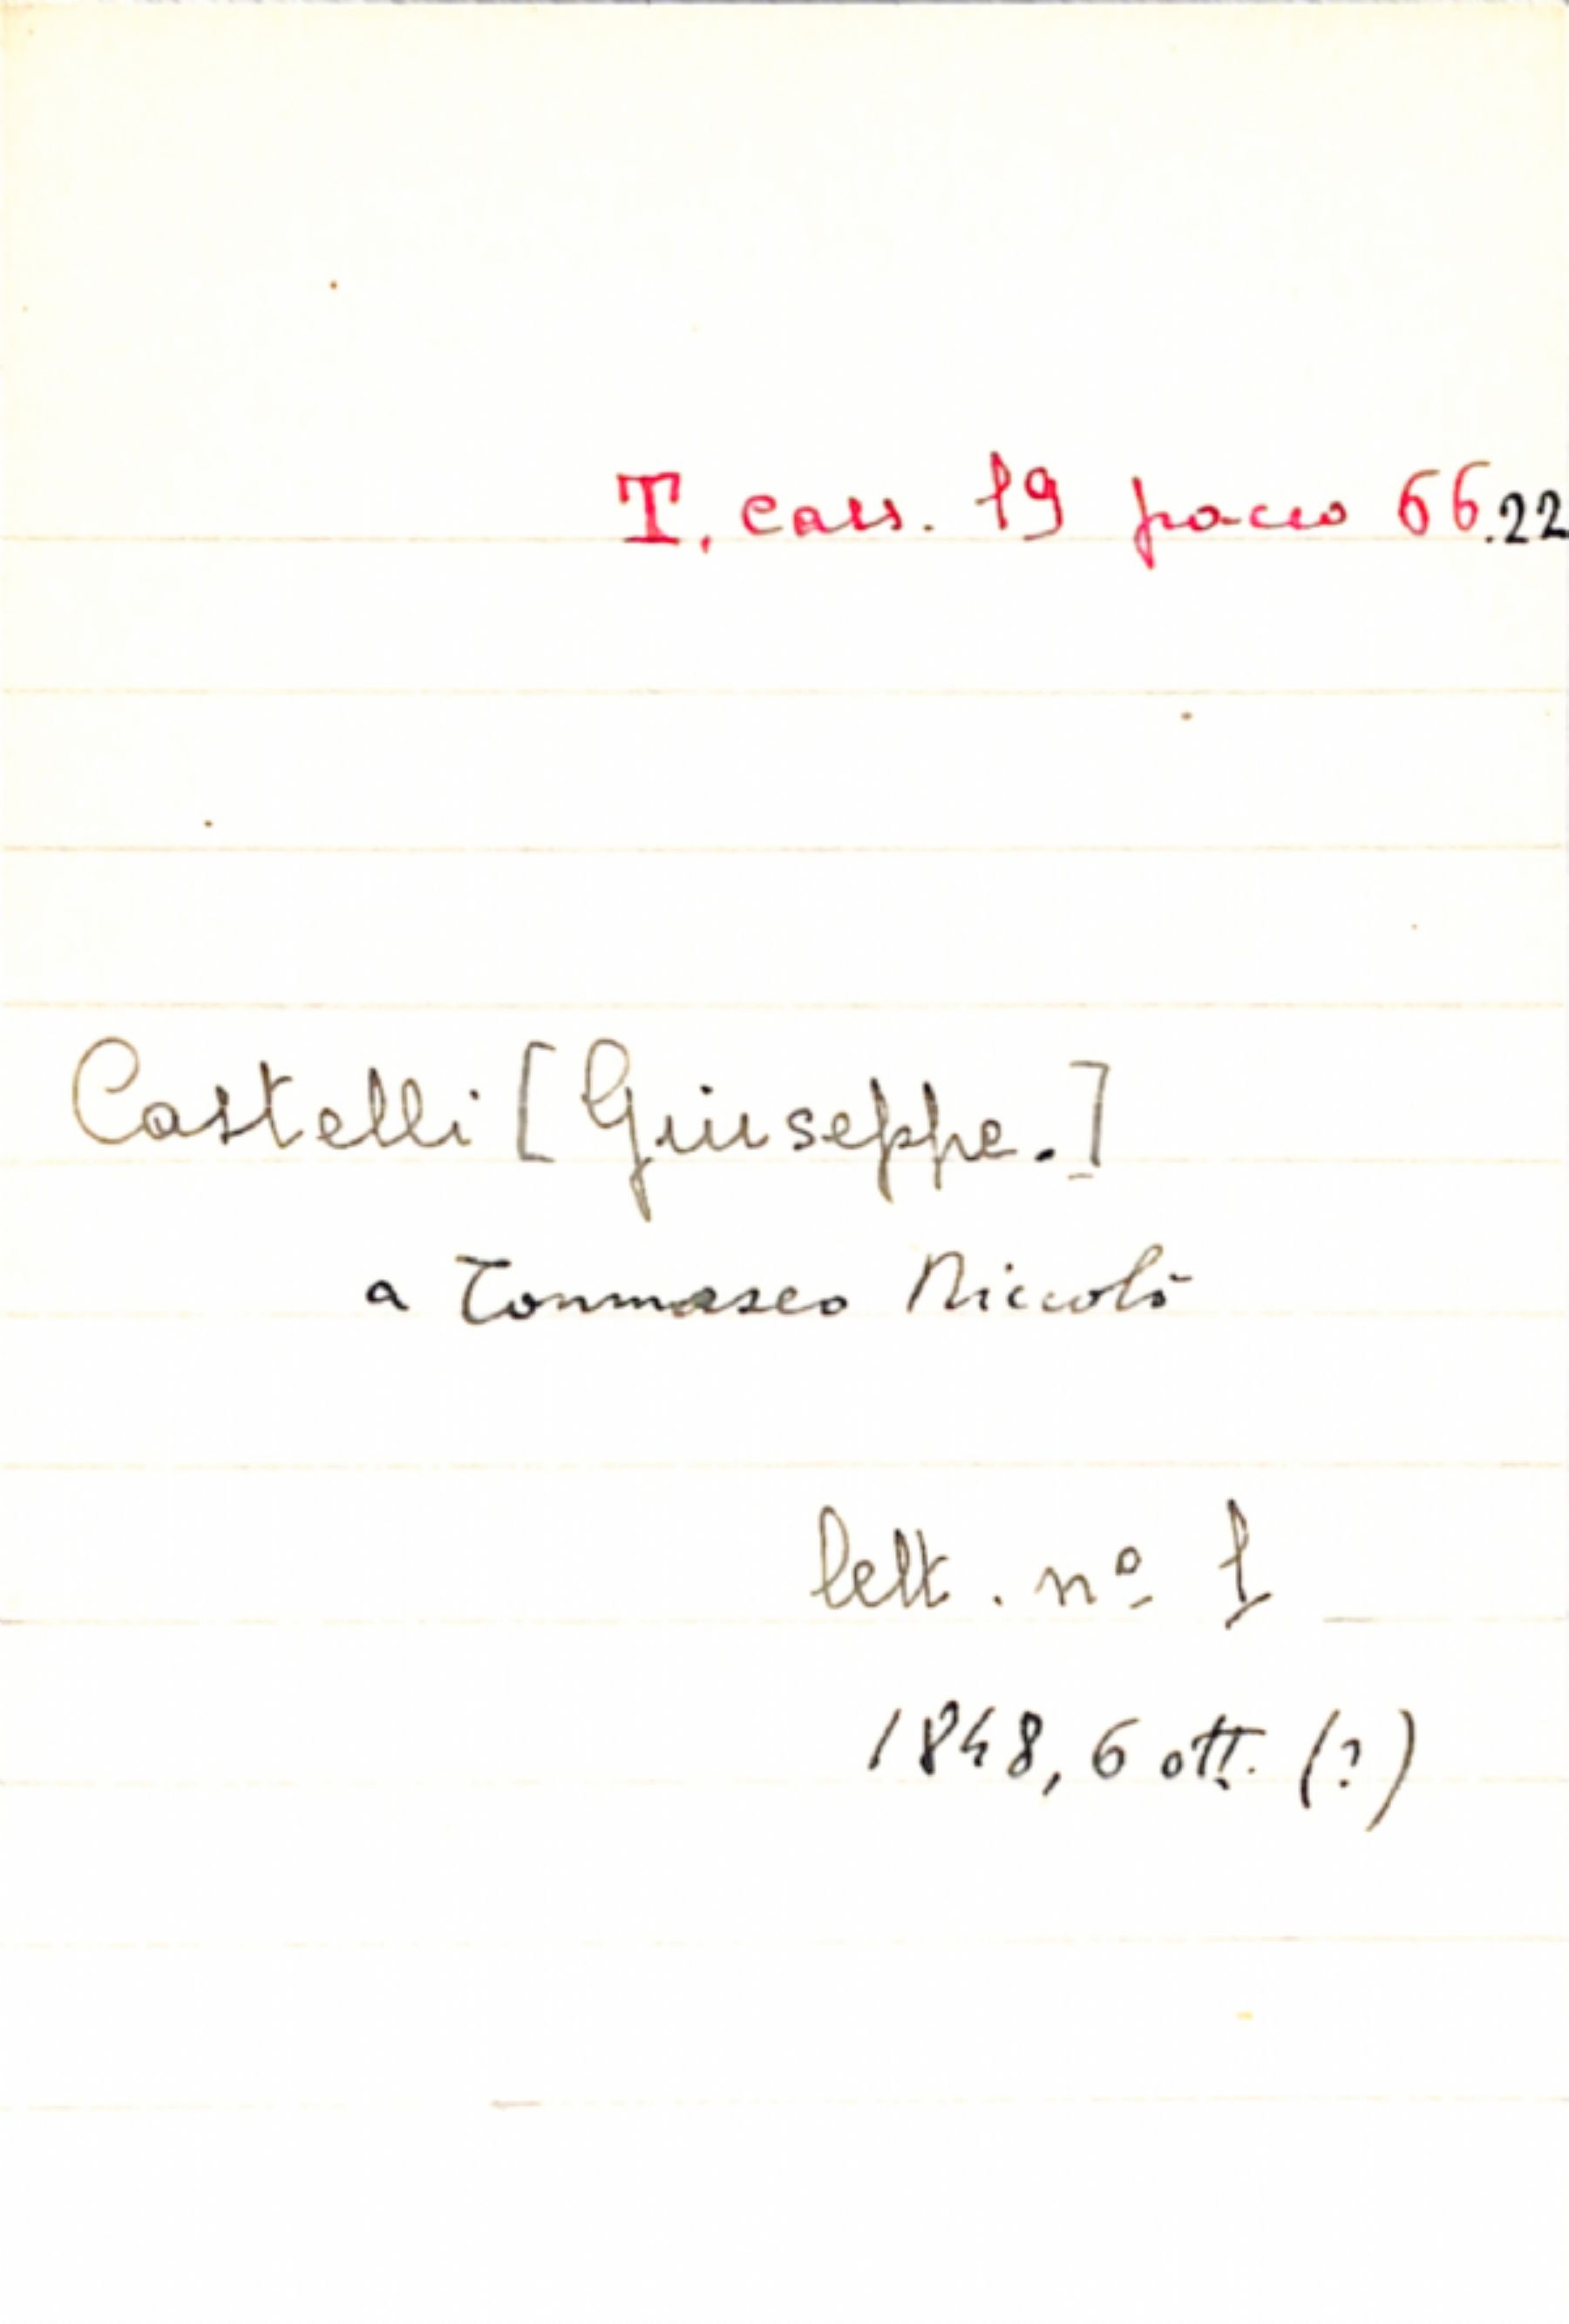 T. cass. 19 pacco 66.22
Castelli [Giuseppe.]
a Tommaseo Niccolò
lett. nº 1
1848, 6 ott. (?)